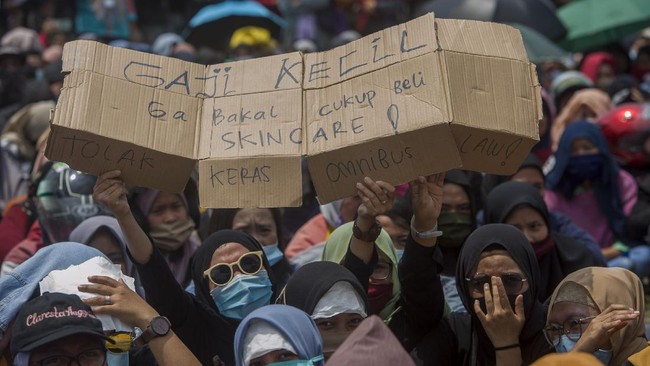 GAJI KECIL
Ga Bakal CUKUP BELi
SKINCARE!
TOLAK KERAS OMNIBUS LAW!
Clarestaxfood